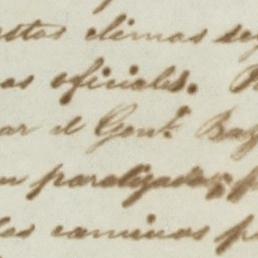 estos climas se
os oficiales.
ar el Gen.l Baz
n paralizados, p
los caminos p